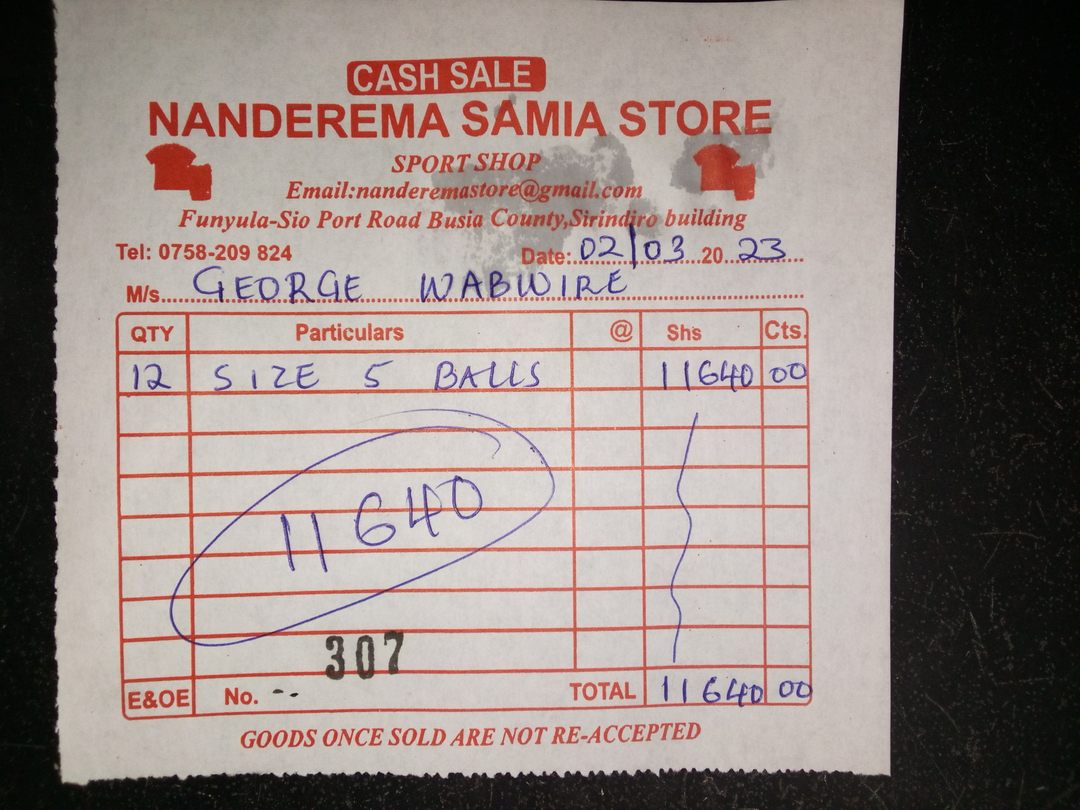 CASH SALE
NANDEREMA SAMIA STORE
SPORT SHOP
Email:nanderemastore@gmail.com
Funyula-Sio Port Road Busia County,Sirindiro building
Tel: 0758-209 824 Date: 02/03 20 23
M/s. GEORGE WABWIRE
QTY Particulars @ Shs Cts.
12 SIZE 5 BALLS 11640 00
11640
307
E&OE No. -- TOTAL 11640 00
GOODS ONCE SOLD ARE NOT RE-ACCEPTED